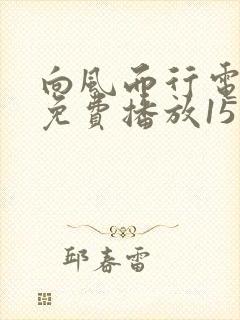 向风而行電
免費播放15
邱春雷